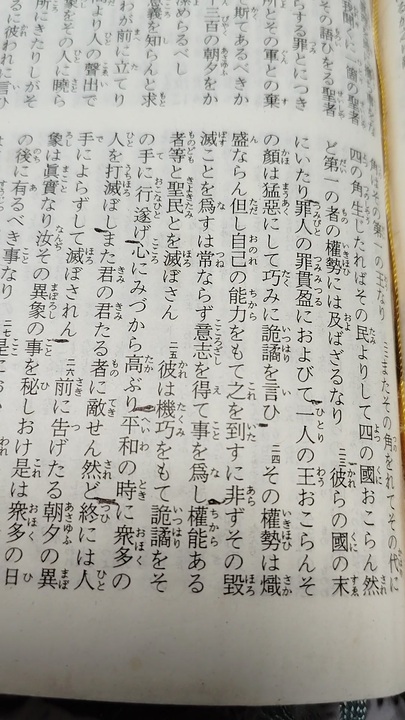 一箇の聖者
その語ひをる聖者
らする罪とにつき
所とその軍との棄
斯てあるべきか
三百の朝夕をか
潔めらるべし
意義を知らんと求
わが前に立てり
より人の聲出で
象をその人に曉ら
所にきたりしがそ
るに彼われに言ひ
角はその第一の王なり またその角をれてその代に
四の角生じたればその民よりして四の國おこらん然
ど第一の者の權勢には及ばざるなり 彼らの國の末
にいたり罪人の罪貫盈におよびて一人の王おこらんそ
の顔は猛惡にして巧みに詭譎を言ひ 二四その權勢は熾
盛ならん但し自己の能力をもて之を到すに非ずその毀
滅ことを爲すは常ならず意志を得て事を爲し權能ある
者等と聖民とを滅ぼさん 二五彼は機巧をもて詭譎をそ
の手に行ひ遂げ心にみづから高ぶり平和の時に衆多の
人を打滅ぼしまた君の君たる者に敵せん然ど終には人
手によらずして滅ぼされん 二六前に告げたる朝夕の異
象は眞實なり汝その異象の事を秘しおけ是は衆多の日
の後に有るべき事なり 二七是において